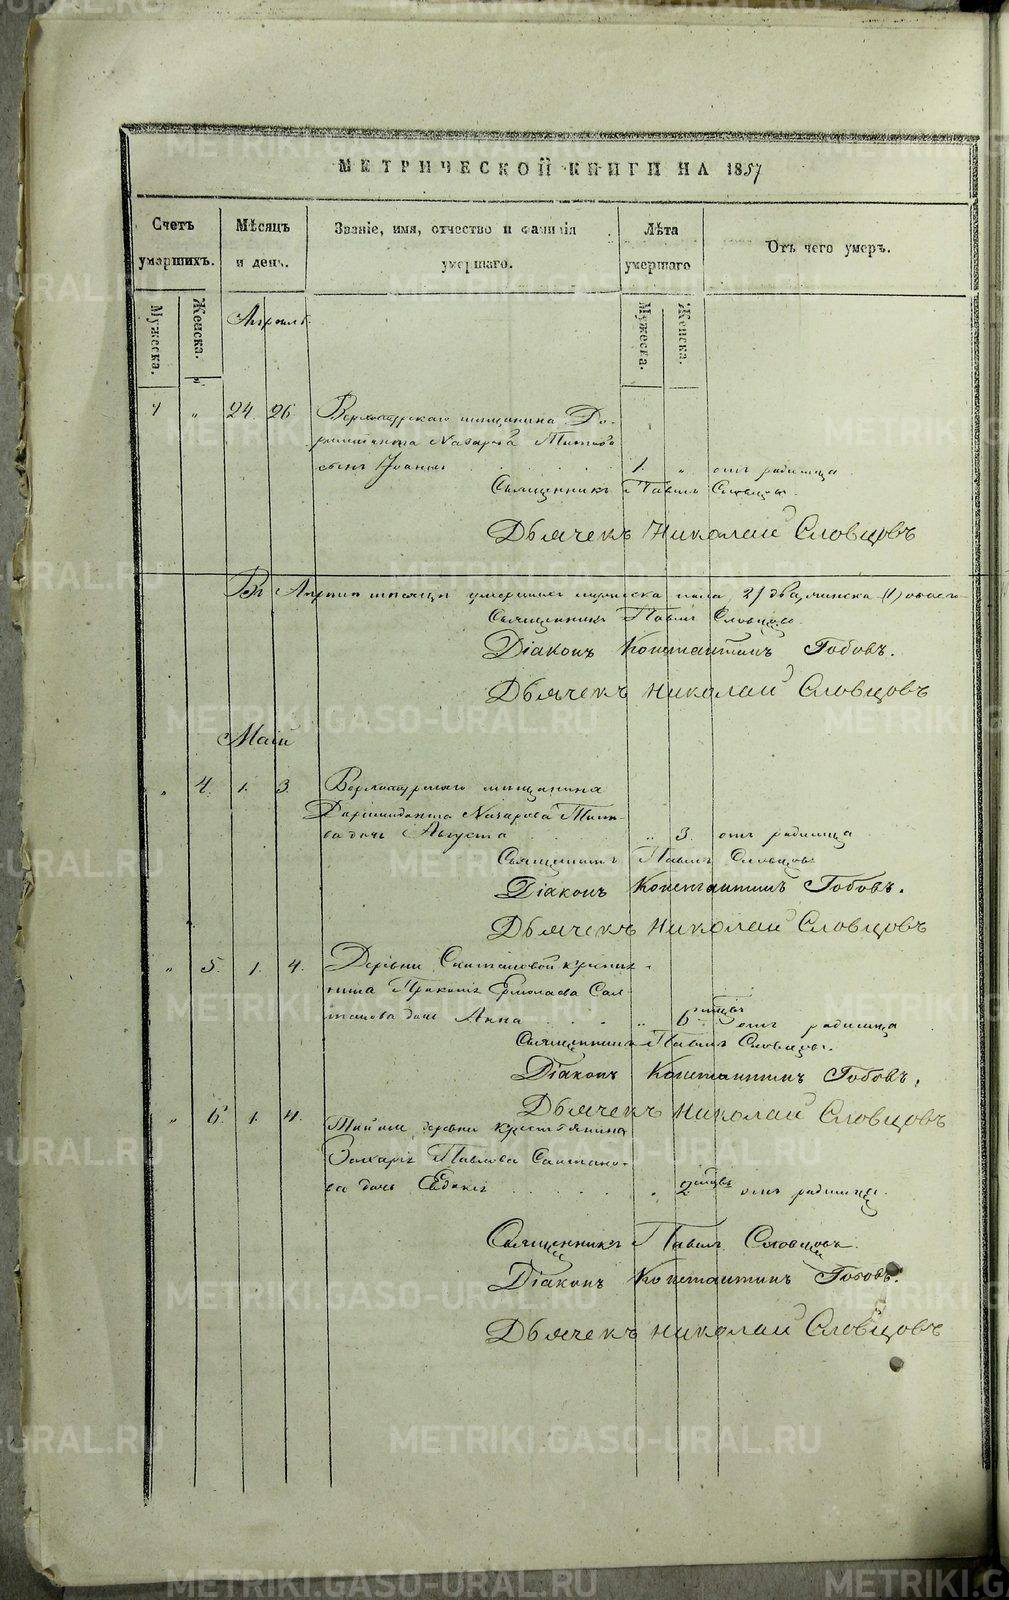 МЕТРИЧЕСКОЙ КНИГИ НА 1857
Счетъ умершихъ.
Мѣсяцъ и день.
Званіе, имя, отчество и фамилія умершаго.
Лѣта умершаго
Отъ чего умеръ.
Мужеска. Женска.
Мужеска. Женска.
Апрель.
7 " 24. 26. Верхотурскаго мещанина До-
Назарова
сынъ Іоаннъ 1. " отъ родимца
Священникъ Павелъ Словцовъ.
Дьячекъ Николай Словцовъ
Въ Апрелѣ месяцѣ умершихъ мужеска пола 2/ два, женска (1)
Священникъ Павелъ Словцовъ.
Діаконъ Константинъ Гобовъ.
Дьячекъ Николай Словцовъ
Май
" 4. 1. 3. Верхотурскаго мещанина
Назарова
ва дочь Августа " 3. отъ родимца
Священникъ Павелъ Словцовъ
Діаконъ Константинъ Гобовъ.
Дьячекъ Николай Словцовъ
" 5. 1. 4. Деревни Салтановой крестья-
нина Прокопія Ермолаева Сал-
танова дочь Анна " 6 отъ родимца
Священникъ Павелъ Словцовъ.
Діаконъ Константинъ Гобовъ.
Дьячекъ Николай Словцовъ
" 6. 1. 4. Той же деревни крестьянина
Захаріи Павлова Салтано-
ва дочь " 2 отъ родимца.
Священникъ Павелъ Словцовъ
Діаконъ Константинъ Гобовъ.
Дьячекъ Николай Словцовъ
METRIKI.GASO-URAL.RU